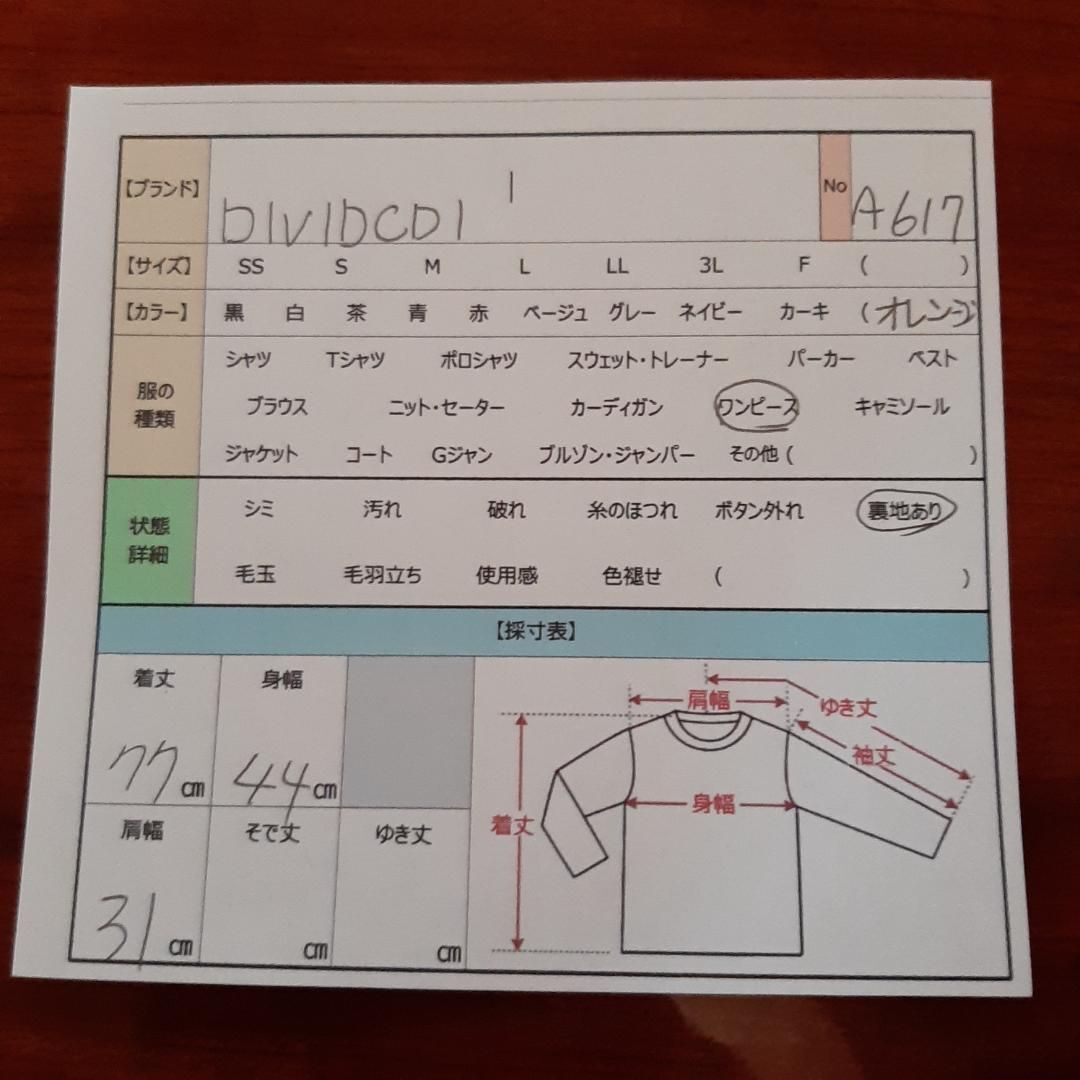 【ブランド】 DIVIDCDI No A617
【サイズ】 SS S M L LL 3L F ( )
【カラー】 黒 白 茶 青 赤 ベージュ グレー ネイビー カーキ (オレンジ
服の種類
シャツ Tシャツ ポロシャツ スウェット・トレーナー パーカー ベスト
ブラウス ニット・セーター カーディガン ワンピース キャミソール
ジャケット コート Gジャン ブルゾン・ジャンパー その他 ( )
状態詳細
シミ 汚れ 破れ 糸のほつれ ボタン外れ 裏地あり
毛玉 毛羽立ち 使用感 色褪せ ( )
【採寸表】
着丈 身幅
77cm 44cm
肩幅 そで丈 ゆき丈
31cm cm cm
肩幅 ゆき丈
袖丈
身幅
着丈